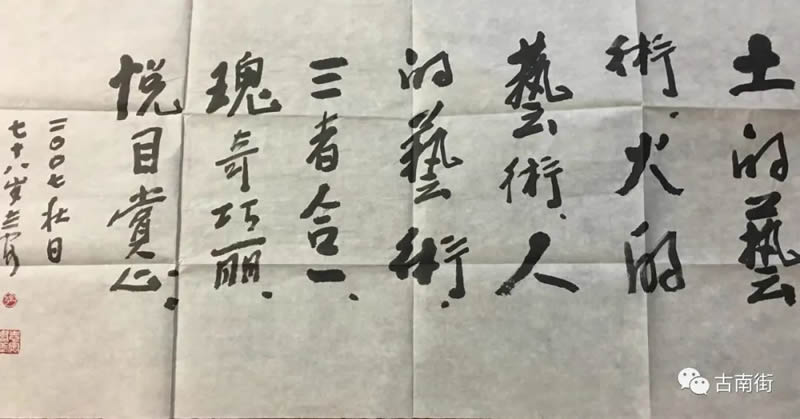 土的藝
術.火的
藝術.人
的藝術.
三者合一.
瑰奇巧丽.
悦目赏心.
二〇〇七秋日
七十八岁
古南街